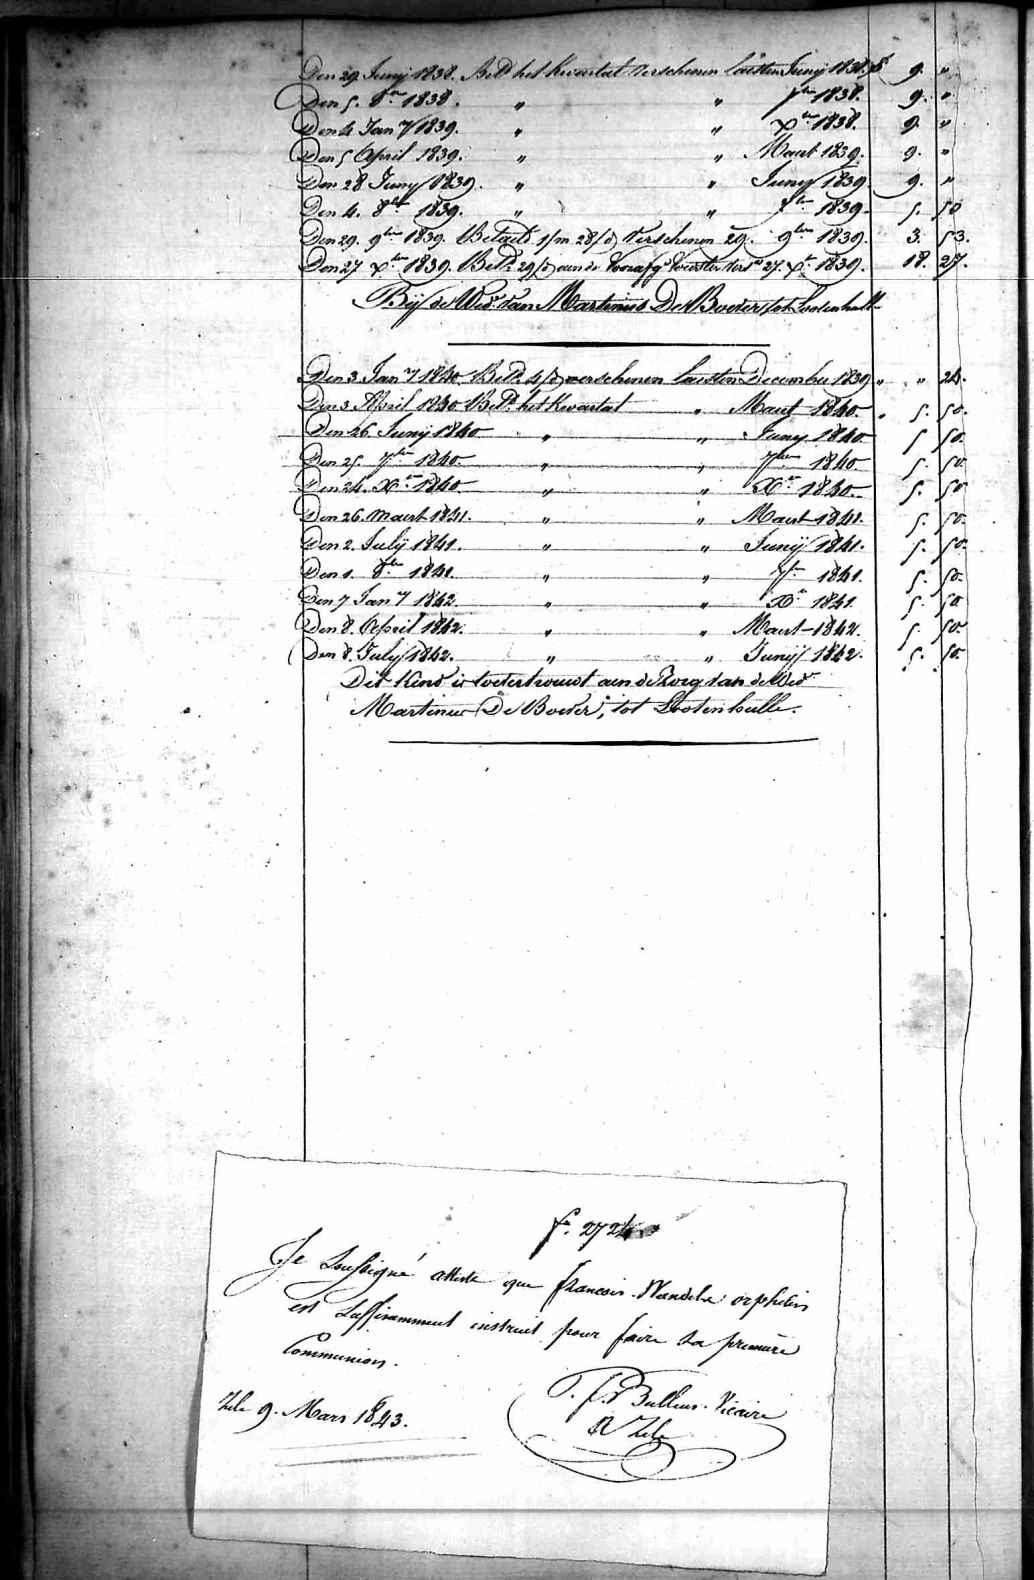 Den 29 Junij 1838. Betd het Kwartaal verschenen laesten Junij 1838. f 9. "
Den 5. 8bre 1838. " " 7bre 1838. 9. "
Den 4 Jany 1839. " " Xbre 1838. 9. "
Den 5 April 1839. " " Maert 1839. 9. "
Den 28 Juny 1839. " " Juny 1839 9. "
Den 4. 8bre 1839. " " 7bre 1839 5. 50
Den 29. 9bre 1839. Betaeld 1/m 28/d verschenen 29. 9bre 1839. 3. 53.
Den 27 Xbre 1839. Betd 29/d aen de Voorafge Voester vers 27. Xbre 1839. 18. 27.
Bij de Wed. van Martinus De Boever tot Lootenhulle
Den 3 Jany 1840 Betd 4/d verschenen laesten December 1839 " " 24.
Den 3 April 1840 Betd het Kwartaal " Maert 1840. " 5. 50.
Den 26 Junij 1840 " " Juny 1840 5 50
Den 25. 7bre 1840. " " 7bre 1840. 5. 50
Den 24. Xbre 1840. " " Xbre 1840. 5. 50
Den 26. Maert 1841. " " Maert 1841. 5. 50.
Den 2. Julij 1841. " " Junij 1841. 5. 50.
Den 1. 8bre 1841. " " 7bre 1841. 5. 50.
Den 7 Jany 1842. " " Xbre 1841. 5. 50
Den 8. April 1842. " " Maert 1842. 5. 50.
Den 8. July 1842. " " Junij 1842. 5. 50.
Dit Kind is toevertrouwt aen de Zorg van de Wed
Martinus De Boever, tot Lootenhulle.
f. 2724
Je Soussigné atteste que francois Wandele orphelin
est Suffisamment instruit pour faire Sa première
Communion.
Zele 9. Mars 1843.
Vicaire
a Zele